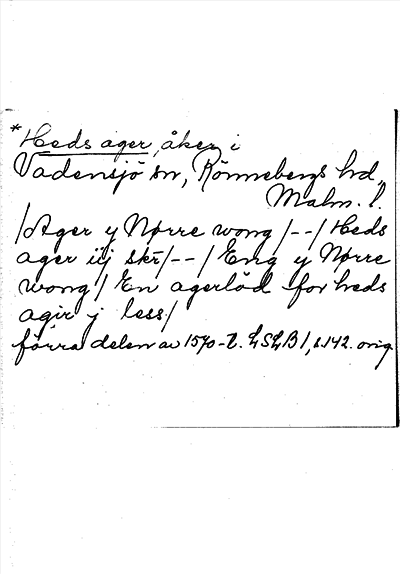 *Heds ager, åker i
Vadensjö sn, Rönnebergs hd,
Malm. l.
/Ager y Nørre wong /--/ Heds
ager iij skr/--/ Eng y Nørre
wong/ En agerlöd for heds
agir j less/
förra delen av 1570-t. LSLB 1, s. 142. orig.